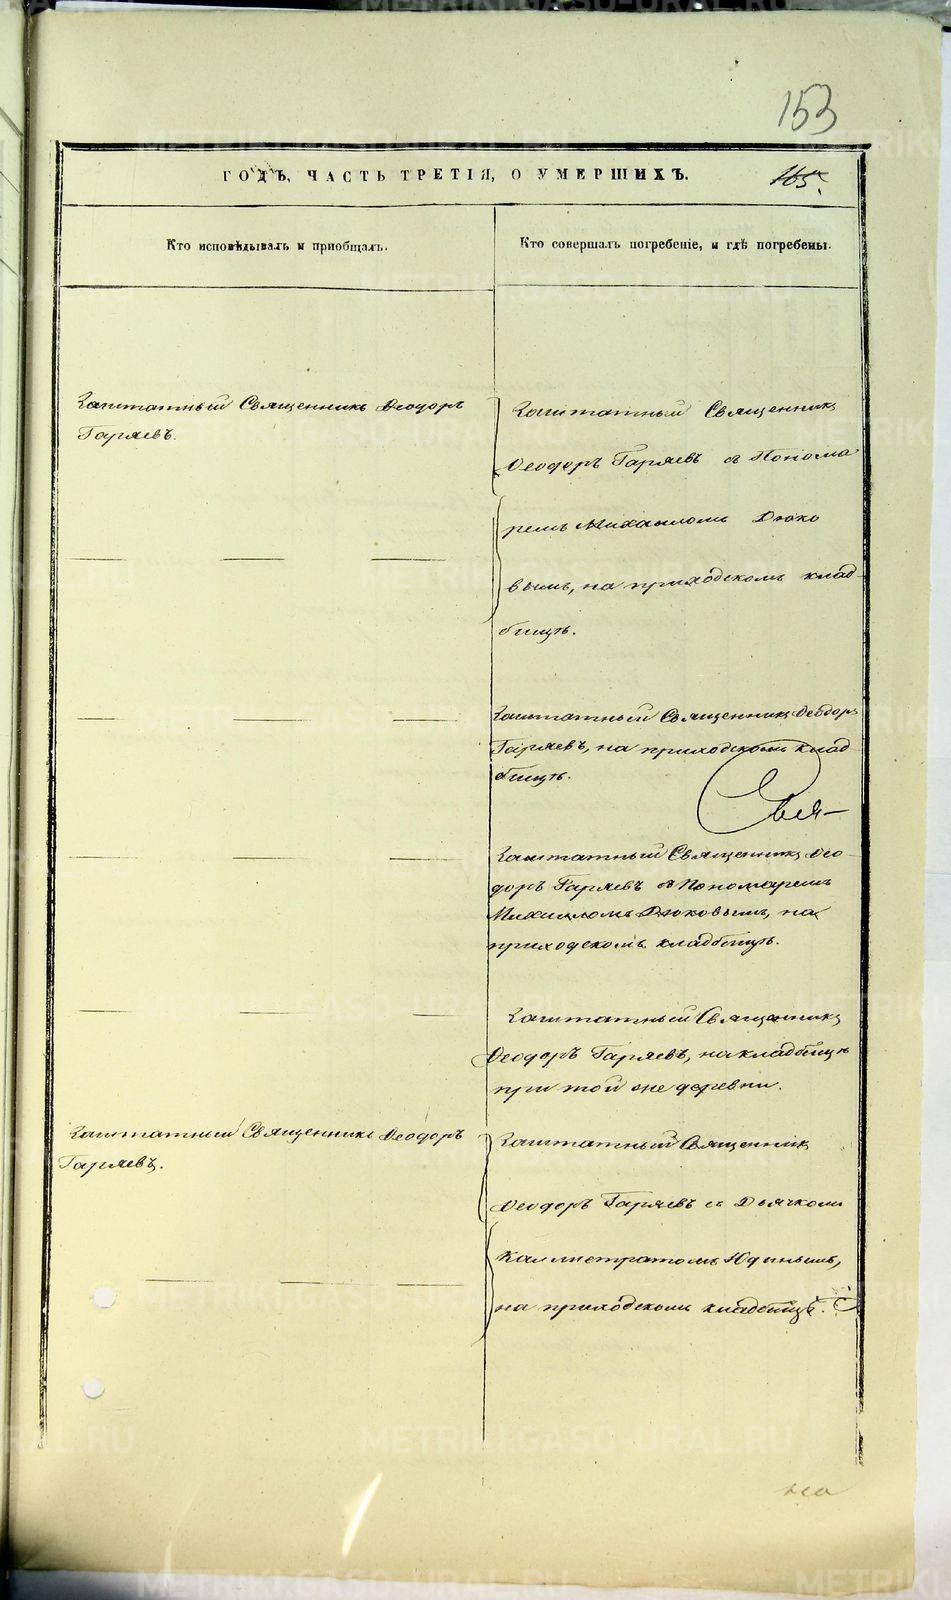 153
ГОДЪ, ЧАСТЬ ТРЕТІЯ, О УМЕРШИХЪ.
165.
Кто исповѣдывалъ и пріобщалъ.
Кто совершалъ погребеніе, и гдѣ погребены.
Заштатный Священникъ Ѳеодоръ
Гаряевъ.
Заштатный Священникъ
Ѳеодоръ Гаряевъ съ Понома
ремъ Михаиломъ Дюко
вымъ, на приходскомъ клад-
бищѣ.
Заштатный Священникъ Ѳеодоръ
Гаряевъ, на приходскомъ клад
бищѣ.
Заштатный Священникъ Ѳео-
доръ Гаряевъ съ Пономаремъ
Михаиломъ Дюковымъ, на
приходскомъ кладбищѣ.
Заштатный Священникъ
Ѳеодоръ Гаряевъ, на кладбищѣ
при той же деревни.
Заштатный Священникъ Ѳеодоръ
Гаряевъ.
Заштатный Священникъ
Ѳеодоръ Гаряевъ съ Дьячкомъ
Каллистратомъ Юдинымъ,
на приходскомъ кладбищѣ.
METRIKI.GASO-URAL.RU